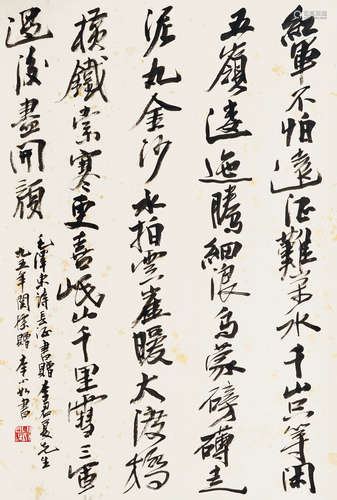 紅軍不怕遠征難萬水千山只等閑
五嶺逶迤騰細浪烏蒙磅礴走
泥丸金沙水拍雲崖暖大渡橋
橫鐵索寒更喜岷山千里雪三軍
過後盡開顏
毛澤東詩長征書贈李君夏先生
九五年贈 李小如書